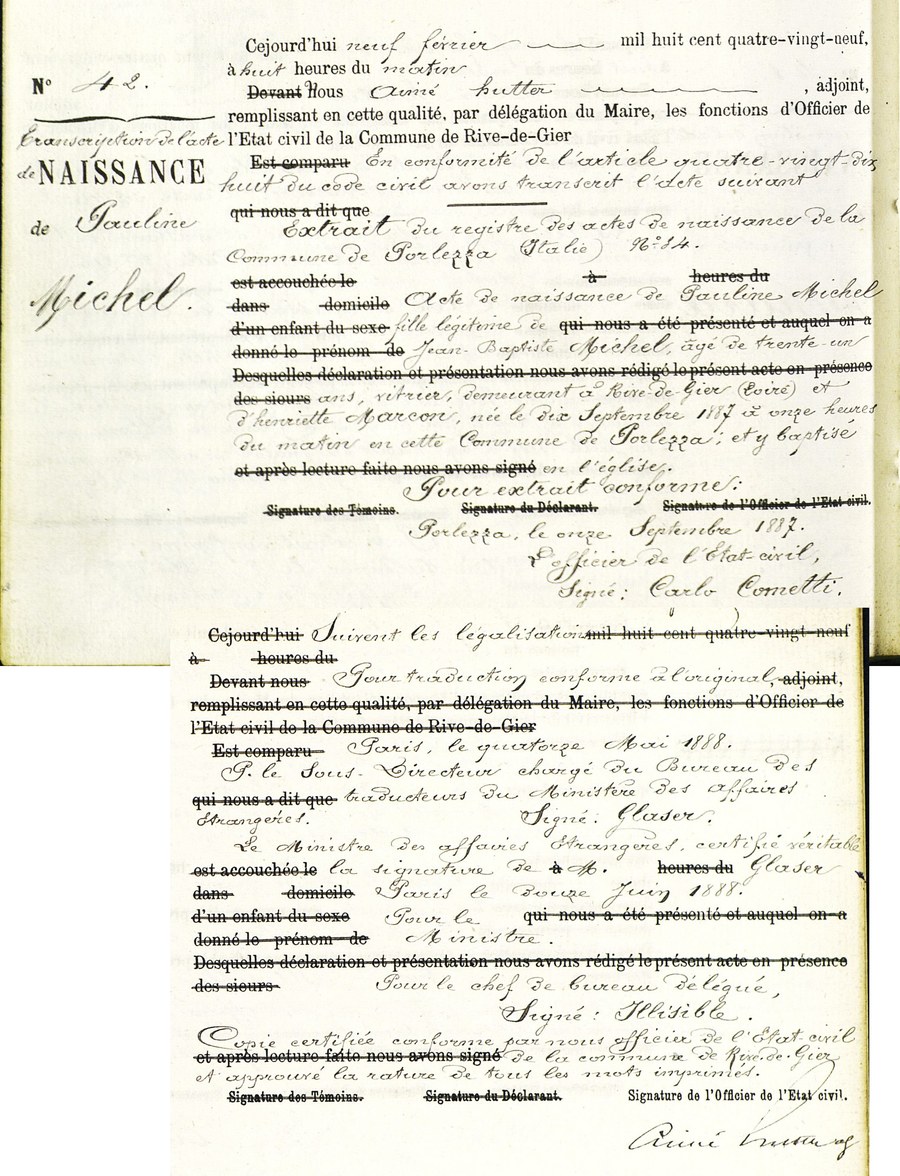 Cejourd'hui neuf février mil huit cent quatre-vingt-neuf,
à huit heures du matin
Devant Nous Aimé hutter , adjoint,
remplissant en cette qualité, par délégation du Maire, les fonctions d'Officier de
l'Etat civil de la Commune de Rive-de-Gier
N° 42.
Transcription de l'acte
de NAISSANCE
de Pauline
Michel.
Est comparu En conformité de l'article quatre-vingt-dix
huit du code civil avons transcrit l'acte suivant
qui nous a dit que
Extrait du registre des actes de naissance de la
Commune de Porlezza (Italie) N° 54.
est accouchée le à heures du
dans domicile Acte de naissance de Pauline Michel
d'un enfant du sexe fille légitime de qui nous a été présenté et auquel on a
donné le prénom de Jean-Baptiste Michel, âgé de trente-un
Desquelles déclaration et présentation nous avons rédigé le présent acte en présence
des sieurs ans, vitrier, demeurant à Rive-de-Gier (Loire) et
d'henriette Marcon, née le dix Septembre 1887 à onze heures
du matin en cette Commune de Porlezza ; et y baptisé
et après lecture faite nous avons signé en l'église.
Pour extrait conforme :
Signature des Témoins. Signature du Déclarant. Signature de l'Officier de l'Etat civil.
Porlezza, le onze Septembre 1887.
L'officier de l'Etat-civil,
Signé : Carlo Cometti.
Cejourd'hui Suivent les légalisations mil huit cent quatre-vingt-neuf
à heures du
Devant nous Pour traduction conforme à l'original, adjoint,
remplissant en cette qualité, par délégation du Maire, les fonctions d'Officier de
l'Etat civil de la Commune de Rive-de-Gier
Est comparu Paris, le quatorze Mai 1888.
P. le Sous-Directeur chargé du Bureau des
qui nous a dit que traducteurs du Ministère des affaires
Etrangères. Signé : Glaser.
Le Ministre des affaires Etrangères, certifie véritable
est accouchée le la signature de à M. heures du Glaser
dans domicile Paris le Douze Juin 1888.
d'un enfant du sexe Pour le qui nous a été présenté et auquel on a
donné le prénom de Ministre.
Desquelles déclaration et présentation nous avons rédigé le présent acte en présence
des sieurs Pour le chef de bureau délégué,
Signé : Illisible.
Copie certifiée conforme par nous officier de l'Etat-civil
et après lecture faite nous avons signé de la commune de Rive-de-Gier
et approuvé la rature de tous les mots imprimés.
Signature des Témoins. Signature du Déclarant. Signature de l'Officier de l'Etat civil.
Aimé